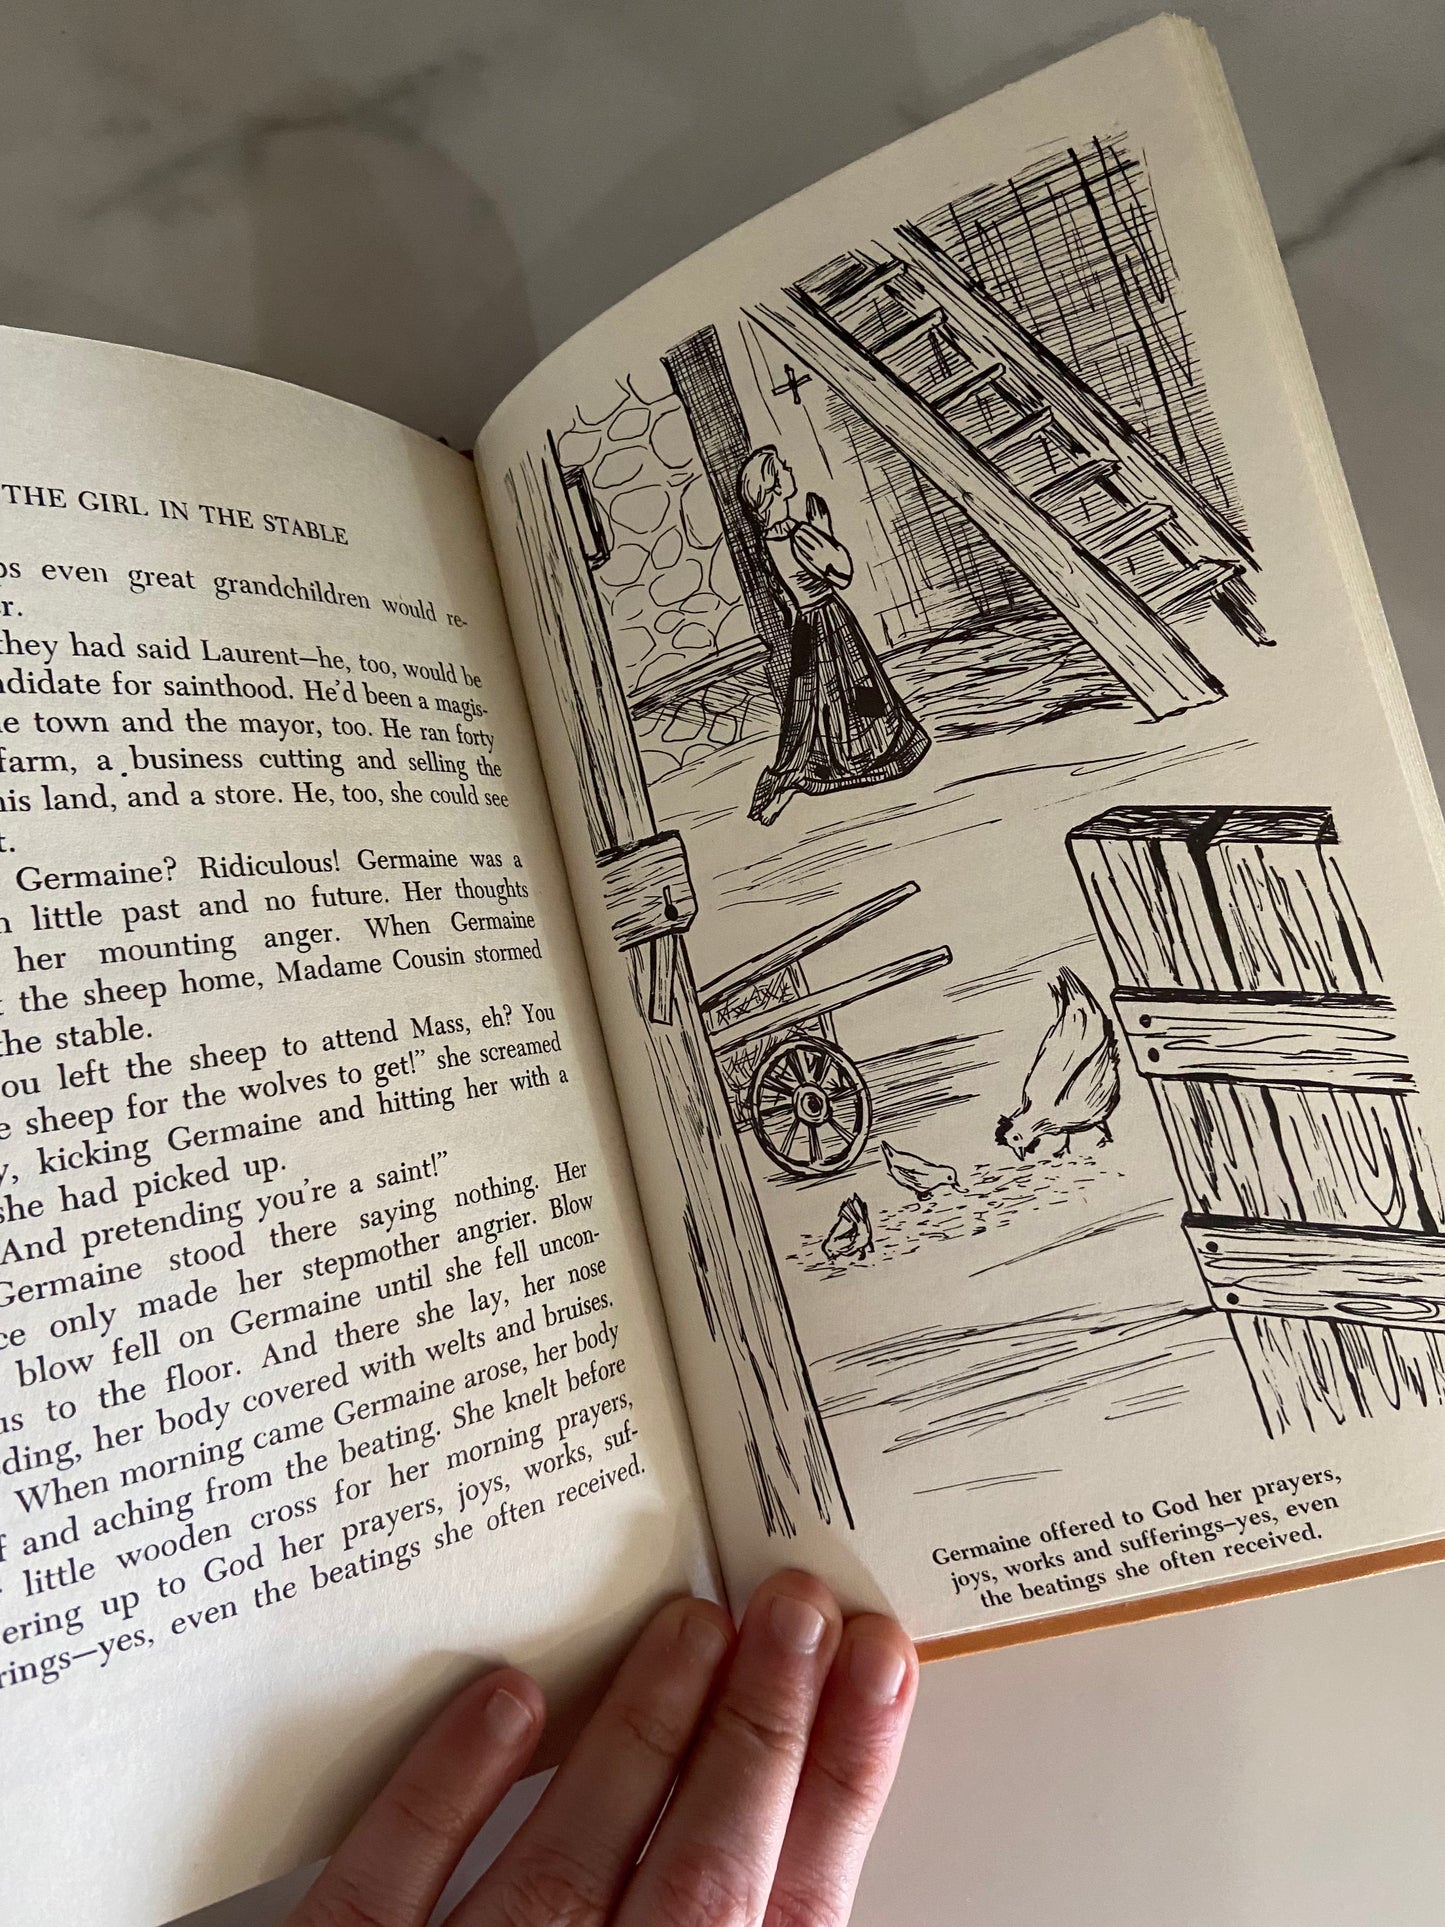 THE GIRL IN THE STABLE
even great grandchildren would re-
they had said Laurent—he, too, would be
for sainthood. He'd been a magis-
town and the mayor, too. He ran forty
farm, a business cutting and selling the
his land, and a store. He, too, she could see
Germaine? Ridiculous! Germaine was a
little past and no future. Her thoughts
her mounting anger. When Germaine
the sheep home, Madame Cousin stormed
the stable.
you left the sheep to attend Mass, eh? You
sheep for the wolves to get!” she screamed
kicking Germaine and hitting her with a
she had picked up.
And pretending you're a saint!”
Germaine stood there saying nothing. Her
only made her stepmother angrier. Blow
blow fell on Germaine until she fell uncon-
to the floor. And there she lay, her nose
her body covered with welts and bruises.
When morning came Germaine arose, her body
and aching from the beating. She knelt before
little wooden cross for her morning prayers,
up to God her prayers, joys, works, suf-
yes, even the beatings she often received.
Germaine offered to God her prayers,
joys, works and sufferings—yes, even
the beatings she often received.